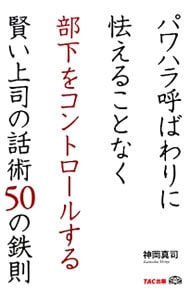 パワハラ呼ばわりに
怯えることなく
部下をコントロールする
賢い上司の話術50の鉄則
神岡真司
Kamioka Shinji
TAC出版